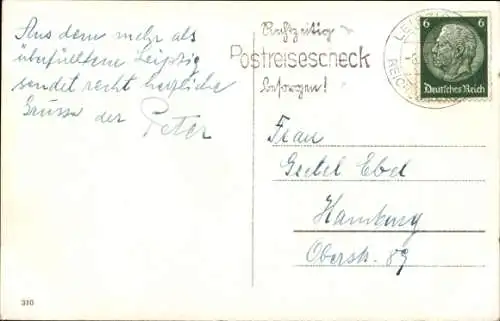 Aus dem mehr als
überfülltem Leipzig
sendet recht herzliche
Grüsse der
Peter
Rechtzeitig
Postreisescheck
besorgen!
6 6
Deutsches Reich
Frau
Gretel Ebel
Hamburg
Oberstr. 89
310